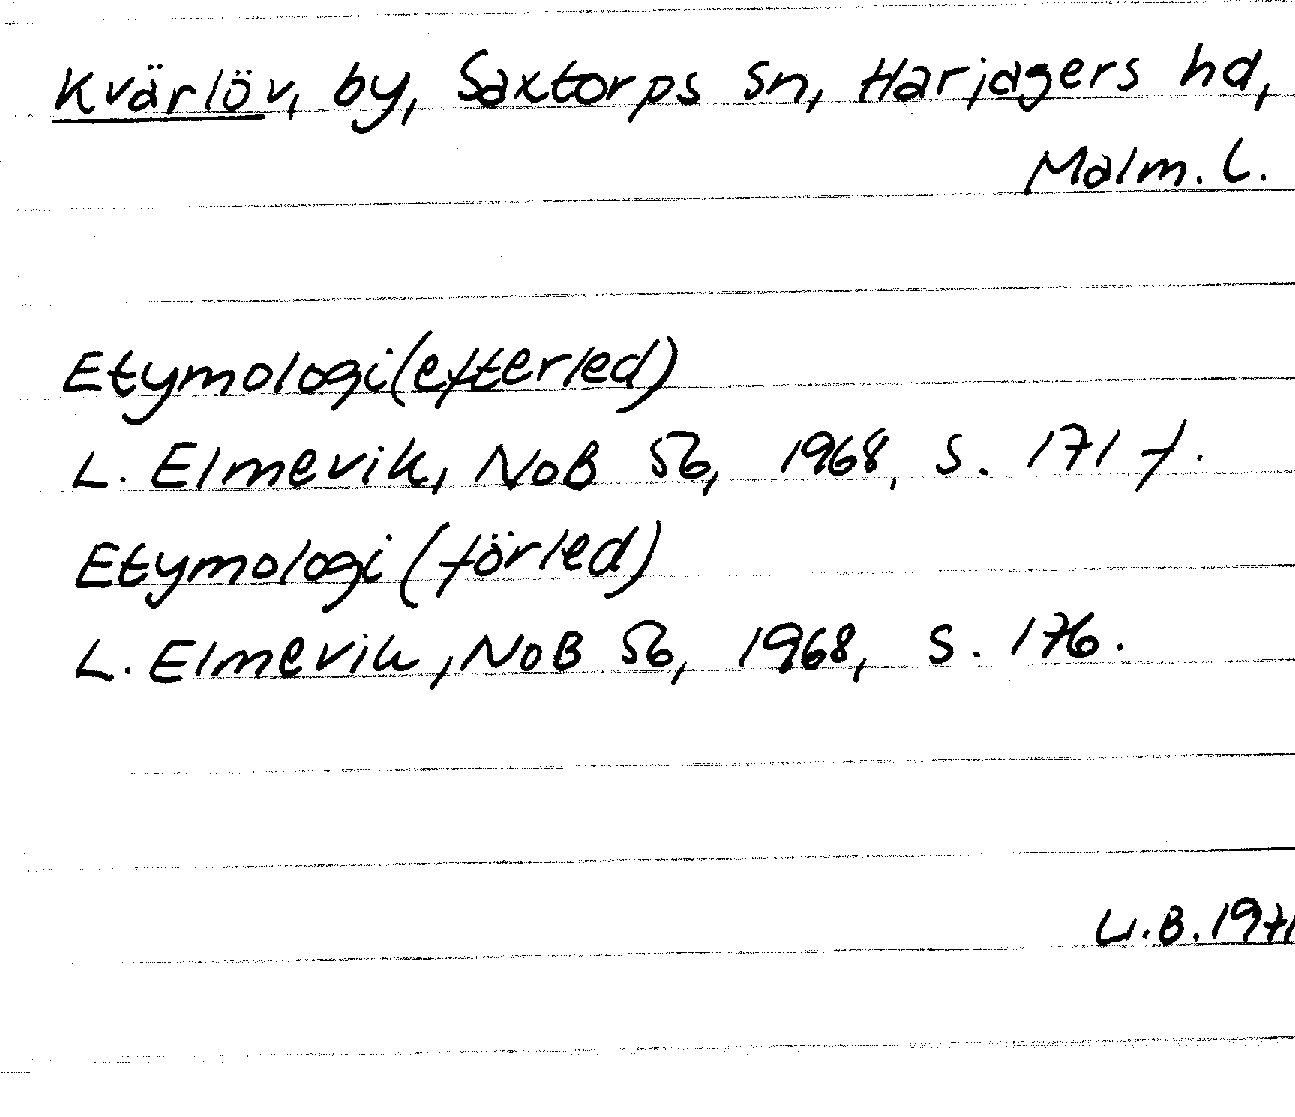 Kvärlöv, by, Saxtorps sn, Harjagers hd,
Malm. l.
Etymologi (efterled)
L. Elmevik, NoB 56, 1968, s. 171 f.
Etymologi (förled)
L. Elmevik, NoB 56, 1968, s. 176.
U.B. 1971